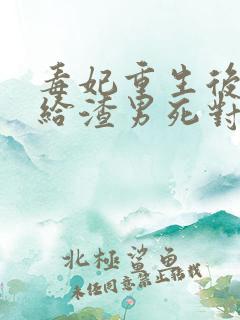 毒妃重生後
給渣男死對
北極鯊魚
未經同意禁止轉載